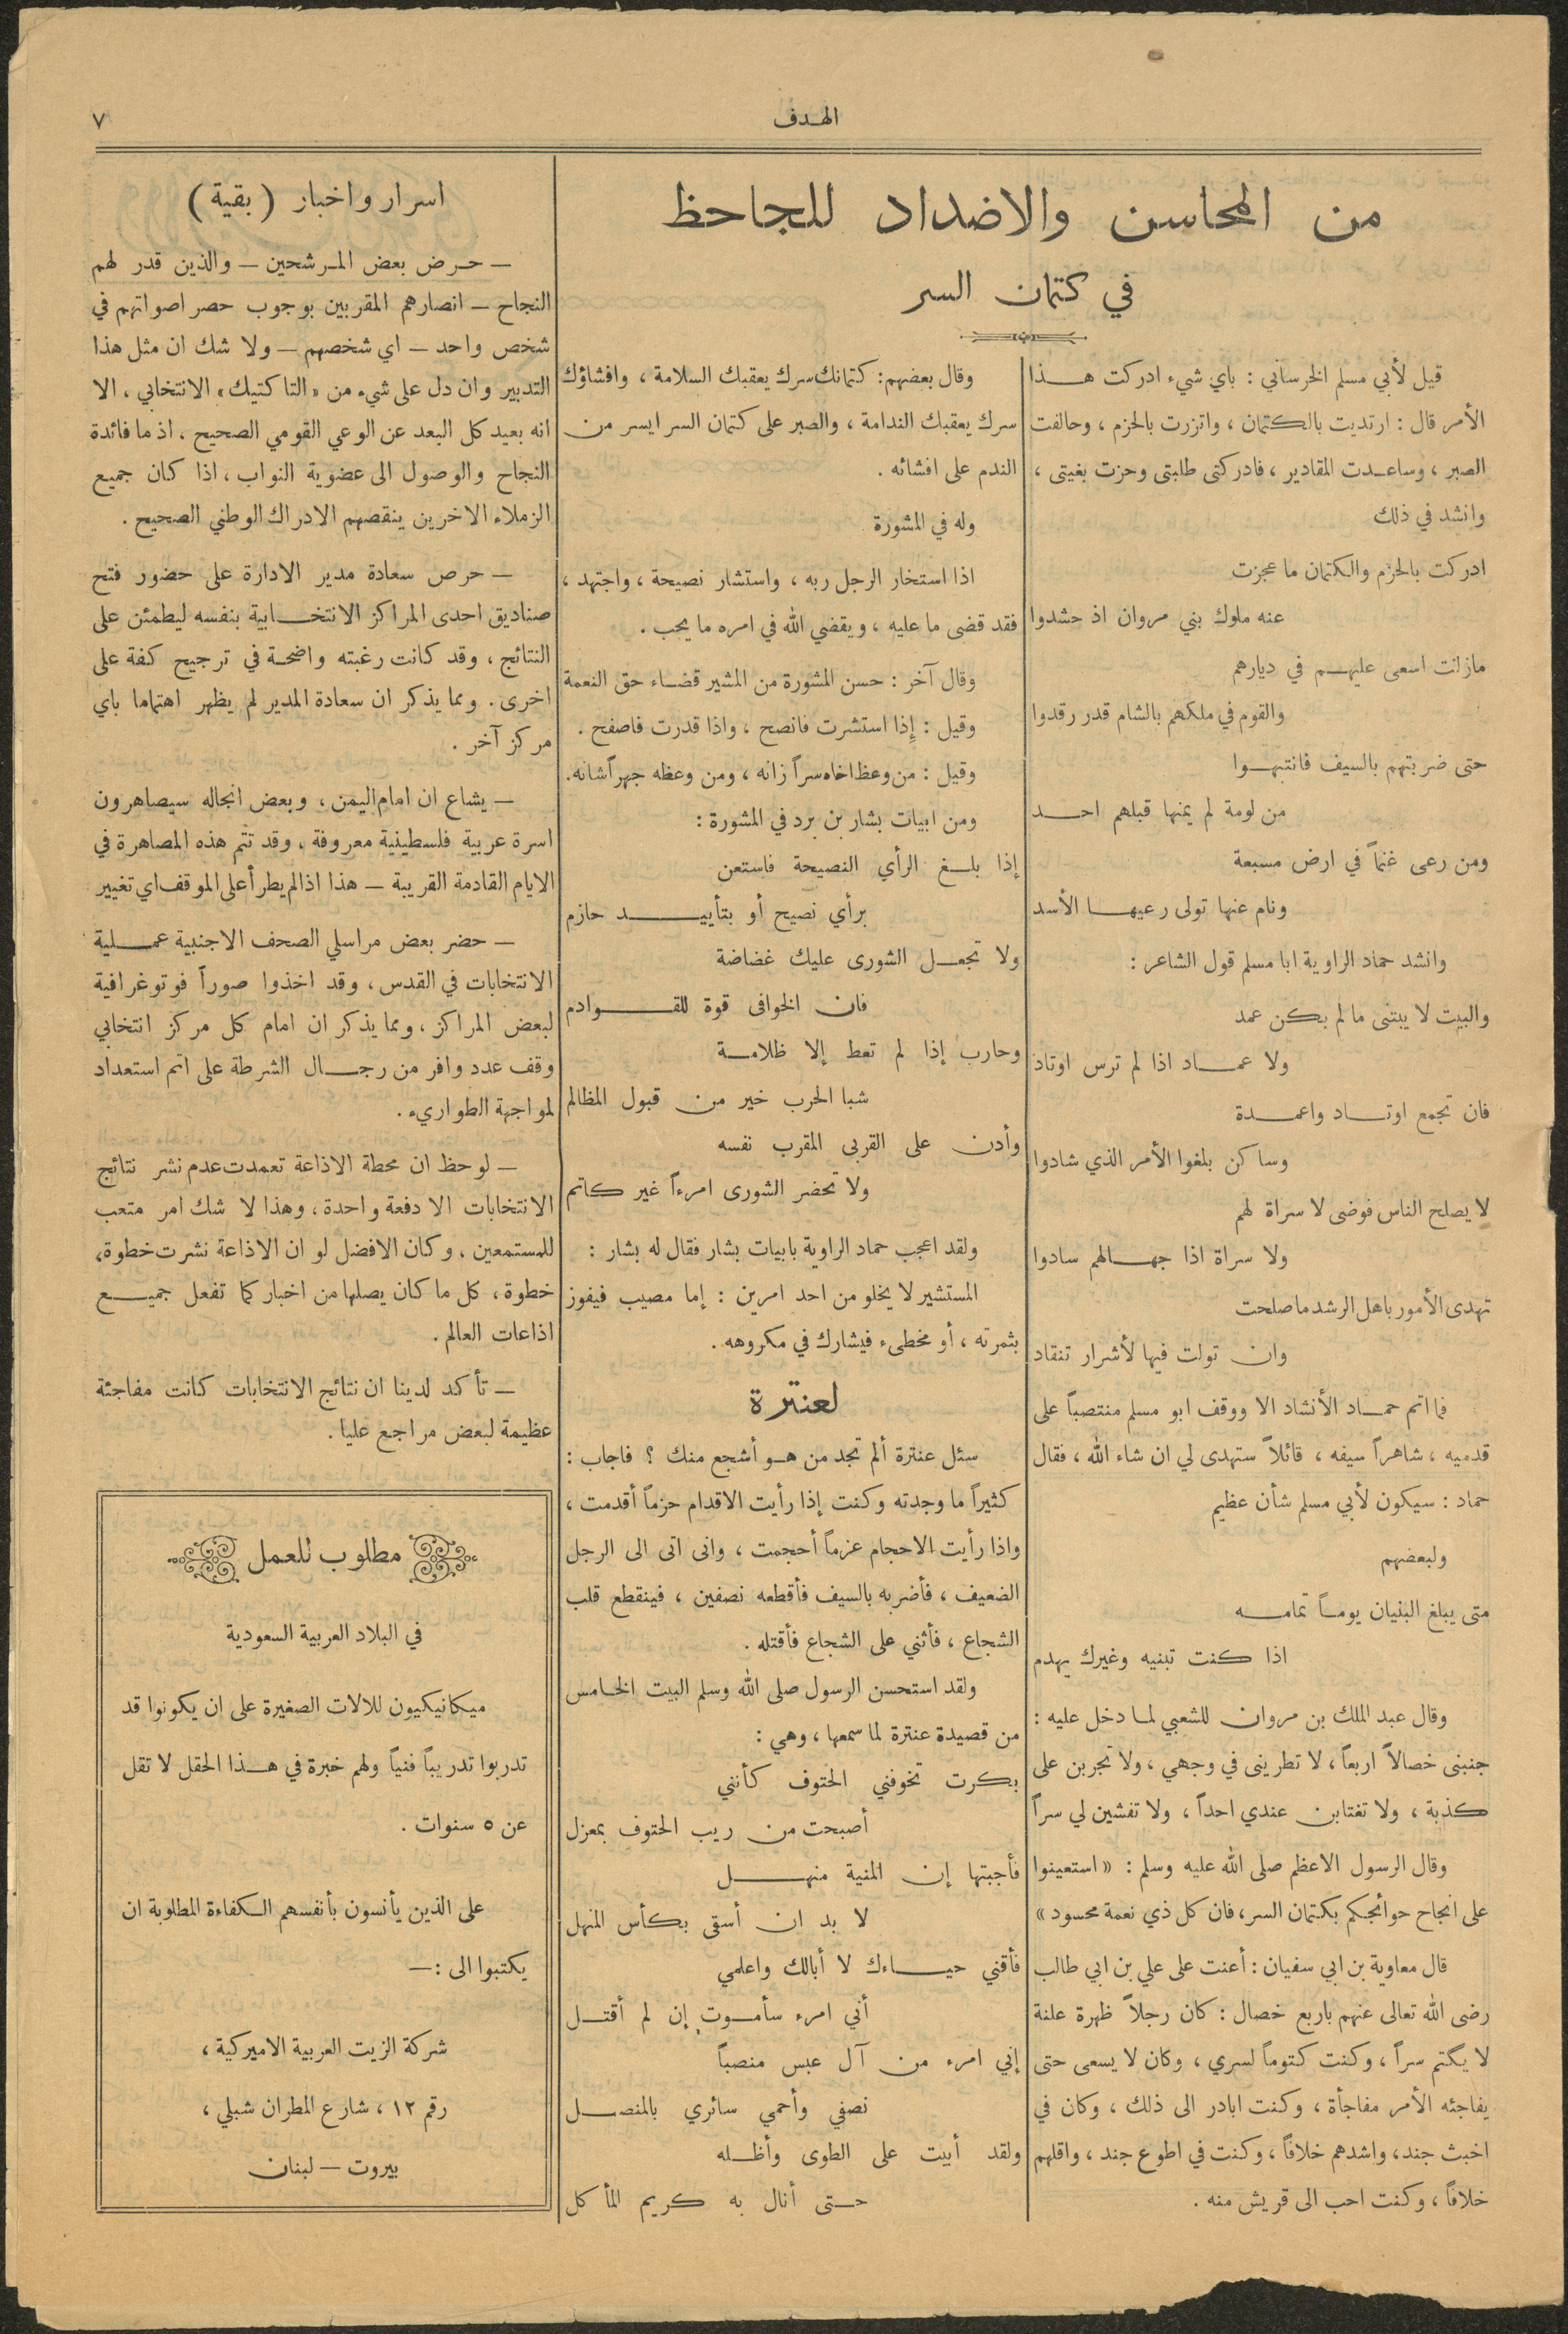 الهدف
٧
من المحاسن والاضداد للجاحظ
في كتمان السر
قيل لأبي مسلم الخرساني : باي شيء ادركت هذا
الأمر قال : ارتديت بالكتمان ، واتزرت بالحزم ، وحالفت
الصبر ، وساعدت المقادير ، فادركتى طلبتى وحزت بغيتى ،
وانشد في ذلك
ادركت بالحزم والكتمان ما عجزت
عنه ملوك بني مروان اذ حشدوا
مازلت اسعى عليهم في ديارهم
والقوم في ملكهم بالشام قدر رقدوا
حتى ضربتهم بالسيف فانتبهوا
من لومة لم يمنها قبلهم احد
ومن رعى غنماً في ارض مسبعة
ونام عنها تولى رعيها الأسد
وانشد حماد الراوية ابا مسلم قول الشاعر :
والبيت لا يبتنى ما لم يكن عمد
ولا عماد اذا لم ترس اوتاذ
فان تجمع اوتاد واعمدة
وساكن بلغوا الأمر الذي شادوا
لا يصلح الناس فوضى لا سراة لهم
ولا سراة اذا جهالهم سادوا
تهدى الأمور باهل الرشد ما صلحت
وان تولت فيها لأشرار تنقاد
فما اتم حماد الأنشاد الا ووقف ابو مسلم منتصباً على
قدميه ، شاهراً سيفه ، قائلاً ستهدى لي ان شاء الله ، فقال
حماد : سيكون لأبي مسلم شأن عظيم
ولبعضهم
متى يبلغ البنيان يوماً تمامه
اذا كنت تبنيه وغيرك يهدم
وقال عبد الملك بن مروان للشعبي لما دخل عليه :
جنبنى خصالاً اربعاً ، لا تطرينى في وجهي ، ولا تجربن على
كذبة ، ولا تغتابن عندي احداً ، ولا تفشين لي سراً
وقال الرسول الاعظم صلى الله عليه وسلم : « استعينوا
على انجاح حوائجكم بكتمان السر ، فان كل ذي نعمة محسود »
قال معاوية بن ابي سفيان : أعنت على علي بن ابي طالب
رضى الله تعالى عنهم باربع خصال : كان رجلاً ظهرة علنة
لا يكتم سراً ، وكنت كتوماً لسري ، وكان لا يسعى حتى
يفاجئه الأمر مفاجأة ، وكنت ابادر الى ذلك ، وكان في
اخبث جند ، واشدهم خلافاً ، وكنت في اطوع جند ، واقلهم
خلافاً ، وكنت احب الى قريش منه .
وقال بعضهم : كتمانك سرك يعقبك السلامة ، وافشاؤك
سرك يعقبك الندامة ، والصبر على كتمان السر ايسر من
الندم على افشائه .
وله في المشورة
اذا استخار الرجل ربه ، واستشار نصيحة ، واجتهد ،
فقد قضى ما عليه ، ويقضي الله في امره ما يحب .
وقال آخر : حسن المشورة من المشير قضاء حق النعمة
وقيل : إذا استشرت فانصح ، واذا قدرت فاصفح .
وقيل : من وعظ اخاه سراً زانه ، ومن وعظه جهراً شانه .
ومن ابيات بشار بن برد في المشورة :
إذا بلغ الرأي النصيحة فاستعن
برأي نصيح أو بتأييد حازم
ولا تجعل الشورى عليك غضاضة
فان الخوافى قوة للقوادم
وحارب إذا لم تعط إلا ظلامة
شبا الحرب خير من قبول المظالم
وأدن على القربى المقرب نفسه
ولا تحضر الشورى امرءاً غير كاتم
ولقد اعجب حماد الراوية بابيات بشار فقال له بشار :
المستشير لا يخلو من احد امرين : إما مصيب فيفوز
بثمرته ، أو مخطىء فيشارك في مكروهه .
لعنترة
سئل عنترة ألم تجد من هو أشجع منك ؟ فاجاب :
كثيراً ما وجدته وكنت إذا رأيت الاقدام حزماً أقدمت ،
واذا رأيت الاحجام عزماً أحجمت ، وانى اتى الى الرجل
الضعيف ، فأضربه بالسيف فأقطعه نصفين ، فينقطع قلب
الشجاع ، فأثني على الشجاع فأقتله .
ولقد استحسن الرسول صلى الله وسلم البيت الخامس
من قصيدة عنترة لما سمعها ، وهي :
بكرت تخوفني الحتوف كأنني
أصبحت من ريب الحتوف بمعزل
فأجبتها إن المنية منهل
لا بد ان أسقى بكأس المنهل
فأقني حياءك لا أبالك واعلمي
أني امرء سأموت إن لم أقتل
إني امرء من آل عبس منصباً
نصفي وأحمي سائري بالمنصل
ولقد أبيت على الطوى وأظله
حتى أنال به كريم المأكل
اسرار واخبار ( بقية )
— حرض بعض المرشحين — والذين قدر لهم
النجاح — انصارهم المقربين بوجوب حصر اصواتهم في
شخص واحد — اي شخصهم — ولا شك ان مثل هذا
التدبير وان دل على شيء من « التاكتيك » الانتخابي ، الا
انه بعيد كل البعد عن الوعي القومي الصحيح ، اذ ما فائدة
النجاح والوصول الى عضوية النواب ، اذا كان جميع
الزملاء الاخرين ينقصهم الادراك الوطني الصحيح .
— حرص سعادة مدير الادارة على حضور فتح
صناديق احدى المراكز الانتخابية بنفسه ليطمئن على
النتائج ، وقد كانت رغبته واضحة في ترجيح كفة على
اخرى . ومما يذكر ان سعادة المدير لم يظهر اهتماما باي
مركز آخر .
— يشاع ان امام اليمن ، وبعض انجاله سيصاهرون
اسرة عربية فلسطينية معروفة ، وقد تتم هذه المصاهرة في
الايام القادمة القريبة — هذا اذا لم يطرأ على الموقف اي تغيير
— حضر بعض مراسلي الصحف الاجنبية عملية
الانتخابات في القدس ، وقد اخذوا صوراً فوتوغرافية
لبعض المراكز ، ومما يذكر ان امام كل مركز انتخابي
وقف عدد وافر من رجال الشرطة على اتم استعداد
لمواجهة الطواريء .
— لوحظ ان محطة الاذاعة تعمدت عدم نشر نتائج
الانتخابات الا دفعة واحدة ، وهذا لا شك امر متعب
للمستمعين ، وكان الافضل لو ان الاذاعة نشرت خطوة ،
خطوة ، كل ما كان يصلها من اخبار كما تفعل جميع
اذاعات العالم .
— تأكد لدينا ان نتائج الانتخابات كانت مفاجئة
عظيمة لبعض مراجع عليا .
مطلوب للعمل
في البلاد العربية السعودية
ميكانيكيون للالات الصغيرة على ان يكونوا قد
تدربوا تدريباً فنياً ولهم خبرة في هذا الحقل لا تقل
عن ٥ سنوات .
على الذين يأنسون بأنفسهم الكفاءة المطلوبة ان
يكتبوا الى :—
شركة الزيت العربية الاميركية ،
رقم ١٢ ، شارع المطران شبلي ،
بيروت — لبنان